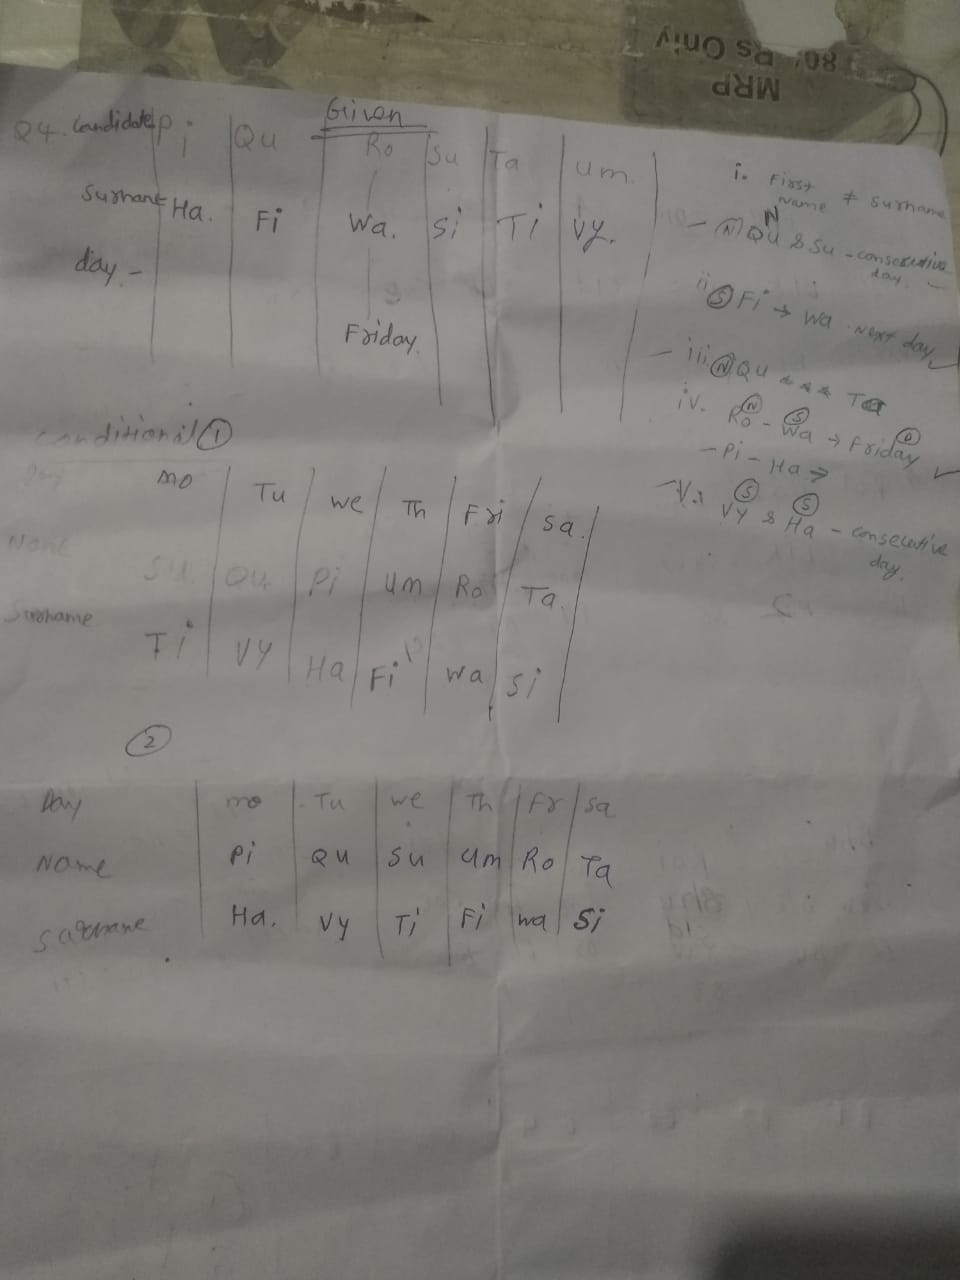 80/ Rs Only
MRP
Given
Q4. Candidate Pi Qu Ro Su Ta Um
Surname Ha. Fi Wa. Si Ti Vy.
day -
Friday.
i. First name ≠ surname
- N Qu & Su - consecutive day. -
ii S Fi → Wa. Next day
- iii N Qu * * * Ta
iv. Ro - Wa → Friday
- Pi - Ha →
- V. Vy & Ha - consecutive day.
Condition 1
Mo Tu We Th Fri Sa.
Name Su Qu Pi Um Ro Ta
Surname Ti Vy Ha Fi Wa Si
2
Day mo Tu We Th Fr Sa
Name Pi Qu Su Um Ro Ta
Ha. Vy Ti Fi Wa Si